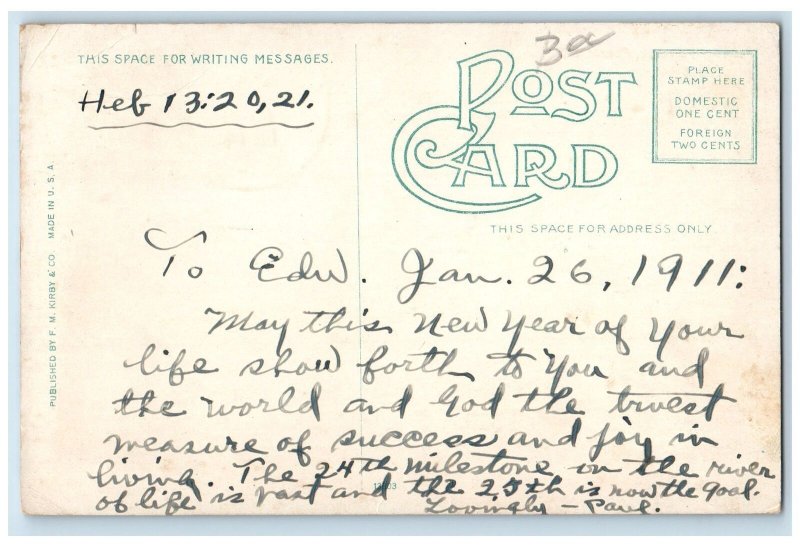 THIS SPACE FOR WRITING MESSAGES.
Heb 13:20,21.
POST CARD
PLACE
STAMP HERE
DOMESTIC
ONE CENT
FOREIGN
TWO CENTS
THIS SPACE FOR ADDRESS ONLY.
PUBLISHED BY F. M. KIRBY & CO. MADE IN U. S. A.
To Edw. Jan. 26, 1911:
May this New Year of your
life show forth to you and
the world and God the truest
measure of success and joy in
living. The 24th milestone on the river
of life is past and the 25th is now the goal.
Lovingly – Paul.